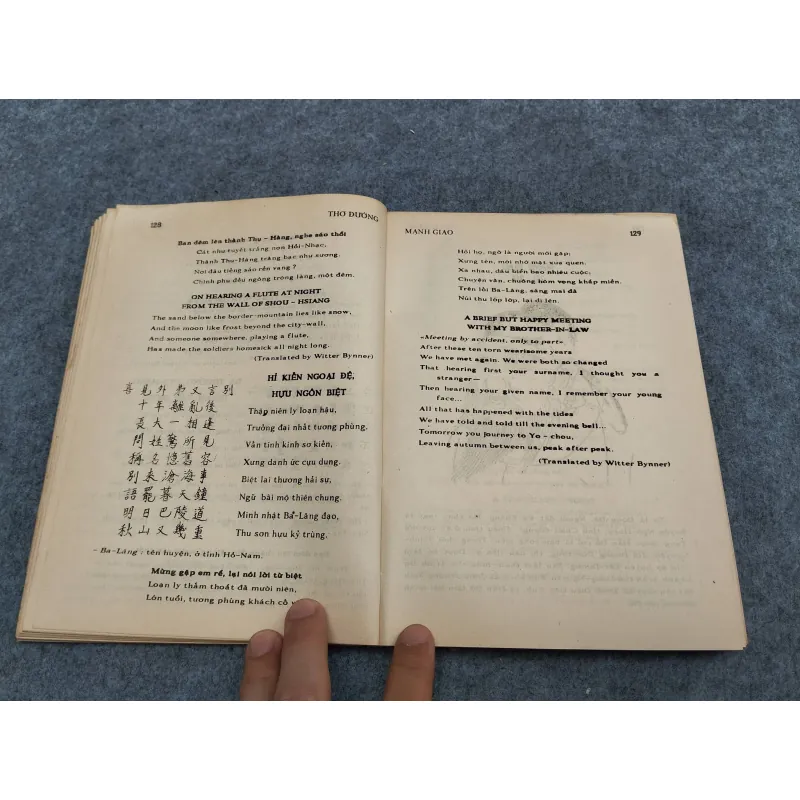 128
THƠ ĐƯỜNG
Ban đêm lên thành Thụ - Hàng, nghe sáo thổi
Cát như tuyết trắng non Hồi-Nhạc,
Thành Thụ-Hàng trăng bạc như sương.
Nơi đâu tiếng sáo rền vang ?
Chinh phu đều ngóng trông làng, một đêm.
ON HEARING A FLUTE AT NIGHT
FROM THE WALL OF SHOU - HSIANG
The sand below the border-mountain lies like snow,
And the moon like frost beyond the city-wall,
And someone somewhere, playing a flute,
Has made the soldiers homesick all night long.
(Translated by Witter Bynner)
HỈ KIẾN NGOẠI ĐỆ,
HỰU NGÔN BIỆT
喜見外弟又言別
十年離亂後
長大一相逢
問姓驚所見
稱名憶舊容
別來滄海事
語罷暮天鐘
明日巴陵道
秋山又幾重
Thập niên ly loạn hậu,
Trưởng đại nhất tương phùng.
Vấn tính kinh sơ kiến,
Xưng danh ức cựu dung.
Biệt lai thương hải sự,
Ngữ bãi mộ thiên chung.
Minh nhật Ba-Lăng đạo,
Thu sơn hựu kỷ trùng.
- Ba-Lăng : tên huyện, ở tỉnh Hồ-Nam.
Mừng gặp em rể, lại nói lời từ biệt
Loạn ly thấm thoắt đã mười niên,
Lớn tuổi, tương phùng khách cố
MẠNH GIAO
129
Hỏi họ, ngỡ là người mới gặp;
Xưng tên, mới nhớ mặt xưa quen.
Xa nhau, dâu biển bao nhiêu cuộc;
Chuyện vãn, chuông hôm vọng khắp miền.
Trên lối Ba-Lăng, sáng mai đã
Núi thu lớp lớp, lại đi lên.
A BRIEF BUT HAPPY MEETING
WITH MY BROTHER-IN-LAW
«Meeting by accident, only to part»
After these ten torn wearisome years
We have met again. We were both so changed
That hearing first your surname, I thought you a
stranger—
Then hearing your given name, I remember your young
face...
All that has happened with the tides
We have told and told till the evening bell...
Tomorrow you journey to Yo - chou,
Leaving autumn between us, peak after peak.
(Translated by Witter Bynner)